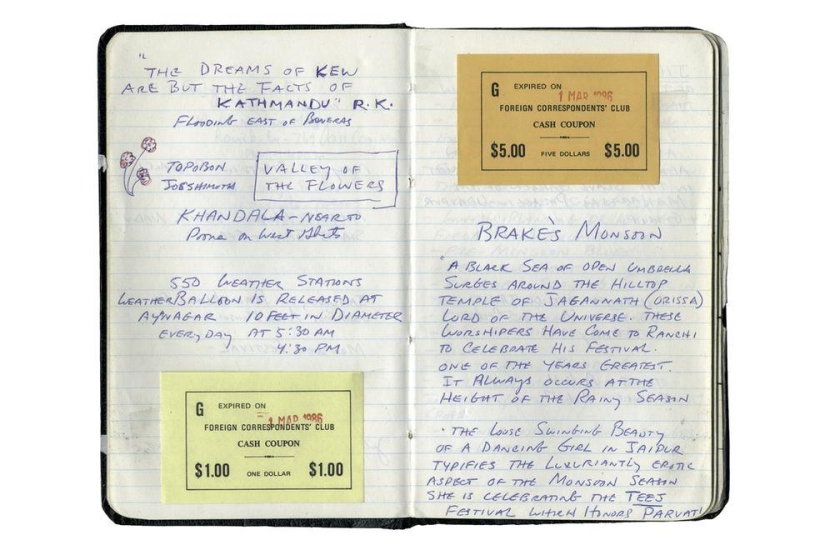 "THE DREAMS OF KEW
ARE BUT THE FACTS OF
KATHMANDU" R.K.
FLOODING EAST OF BENERAS
TOPOBON
JOESHIMOTH
VALLEY OF
THE FLOWERS
KHANDALA - NEAR TO
Poona on West Ghats
550 WEATHER STATIONS
WEATHER BALLOON IS RELEASED AT
AYANAGAR 10 FEET IN DIAMETER
EVERY DAY AT 5:30 AM
4:30 PM
G EXPIRED ON
1 MAR 1986
FOREIGN CORRESPONDENTS' CLUB
CASH COUPON
$1.00 ONE DOLLAR $1.00
G EXPIRED ON
1 MAR 1986
FOREIGN CORRESPONDENTS' CLUB
CASH COUPON
$5.00 FIVE DOLLARS $5.00
BRAKE'S MONSOON
"A BLACK SEA OF OPEN UMBRELLA
SURGES AROUND THE HILLTOP
TEMPLE OF JAGANNATH (ORISSA)
LORD OF THE UNIVERSE. THESE
WORSHIPERS HAVE COME TO RANCHI
TO CELEBRATE HIS FESTIVAL.
ONE OF THE YEARS GREATEST.
IT ALWAYS OCCURS AT THE
HEIGHT OF THE RAINY SEASON
"THE LOOSE SWINGING BEAUTY
OF A DANCING GIRL IN JAIPUR
TYPIFIES THE LUXURIANTLY EROTIC
ASPECT OF THE MONSOON SEASON
SHE IS CELEBRATING THE TEEJ
FESTIVAL WHICH HONORS PARVATI